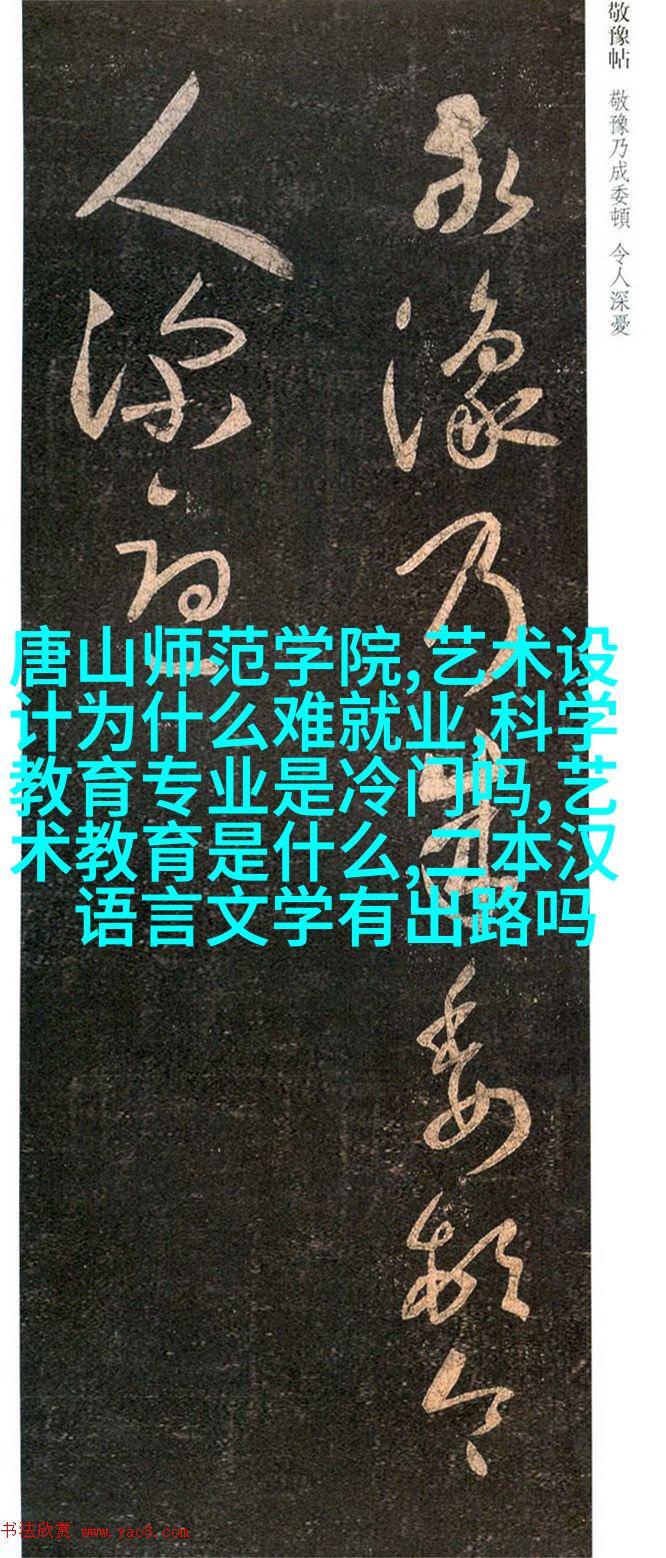 敬豫帖 敬豫乃成委頓 令人深憂
敬豫乃成委頓令
人深憂
唐山师范学院,艺术设
计为什么难就业,科学
教育专业是冷门吗,艺
术教育是什么,二本汉
语言文学有出路吗
书法欣赏 www.yac8.com